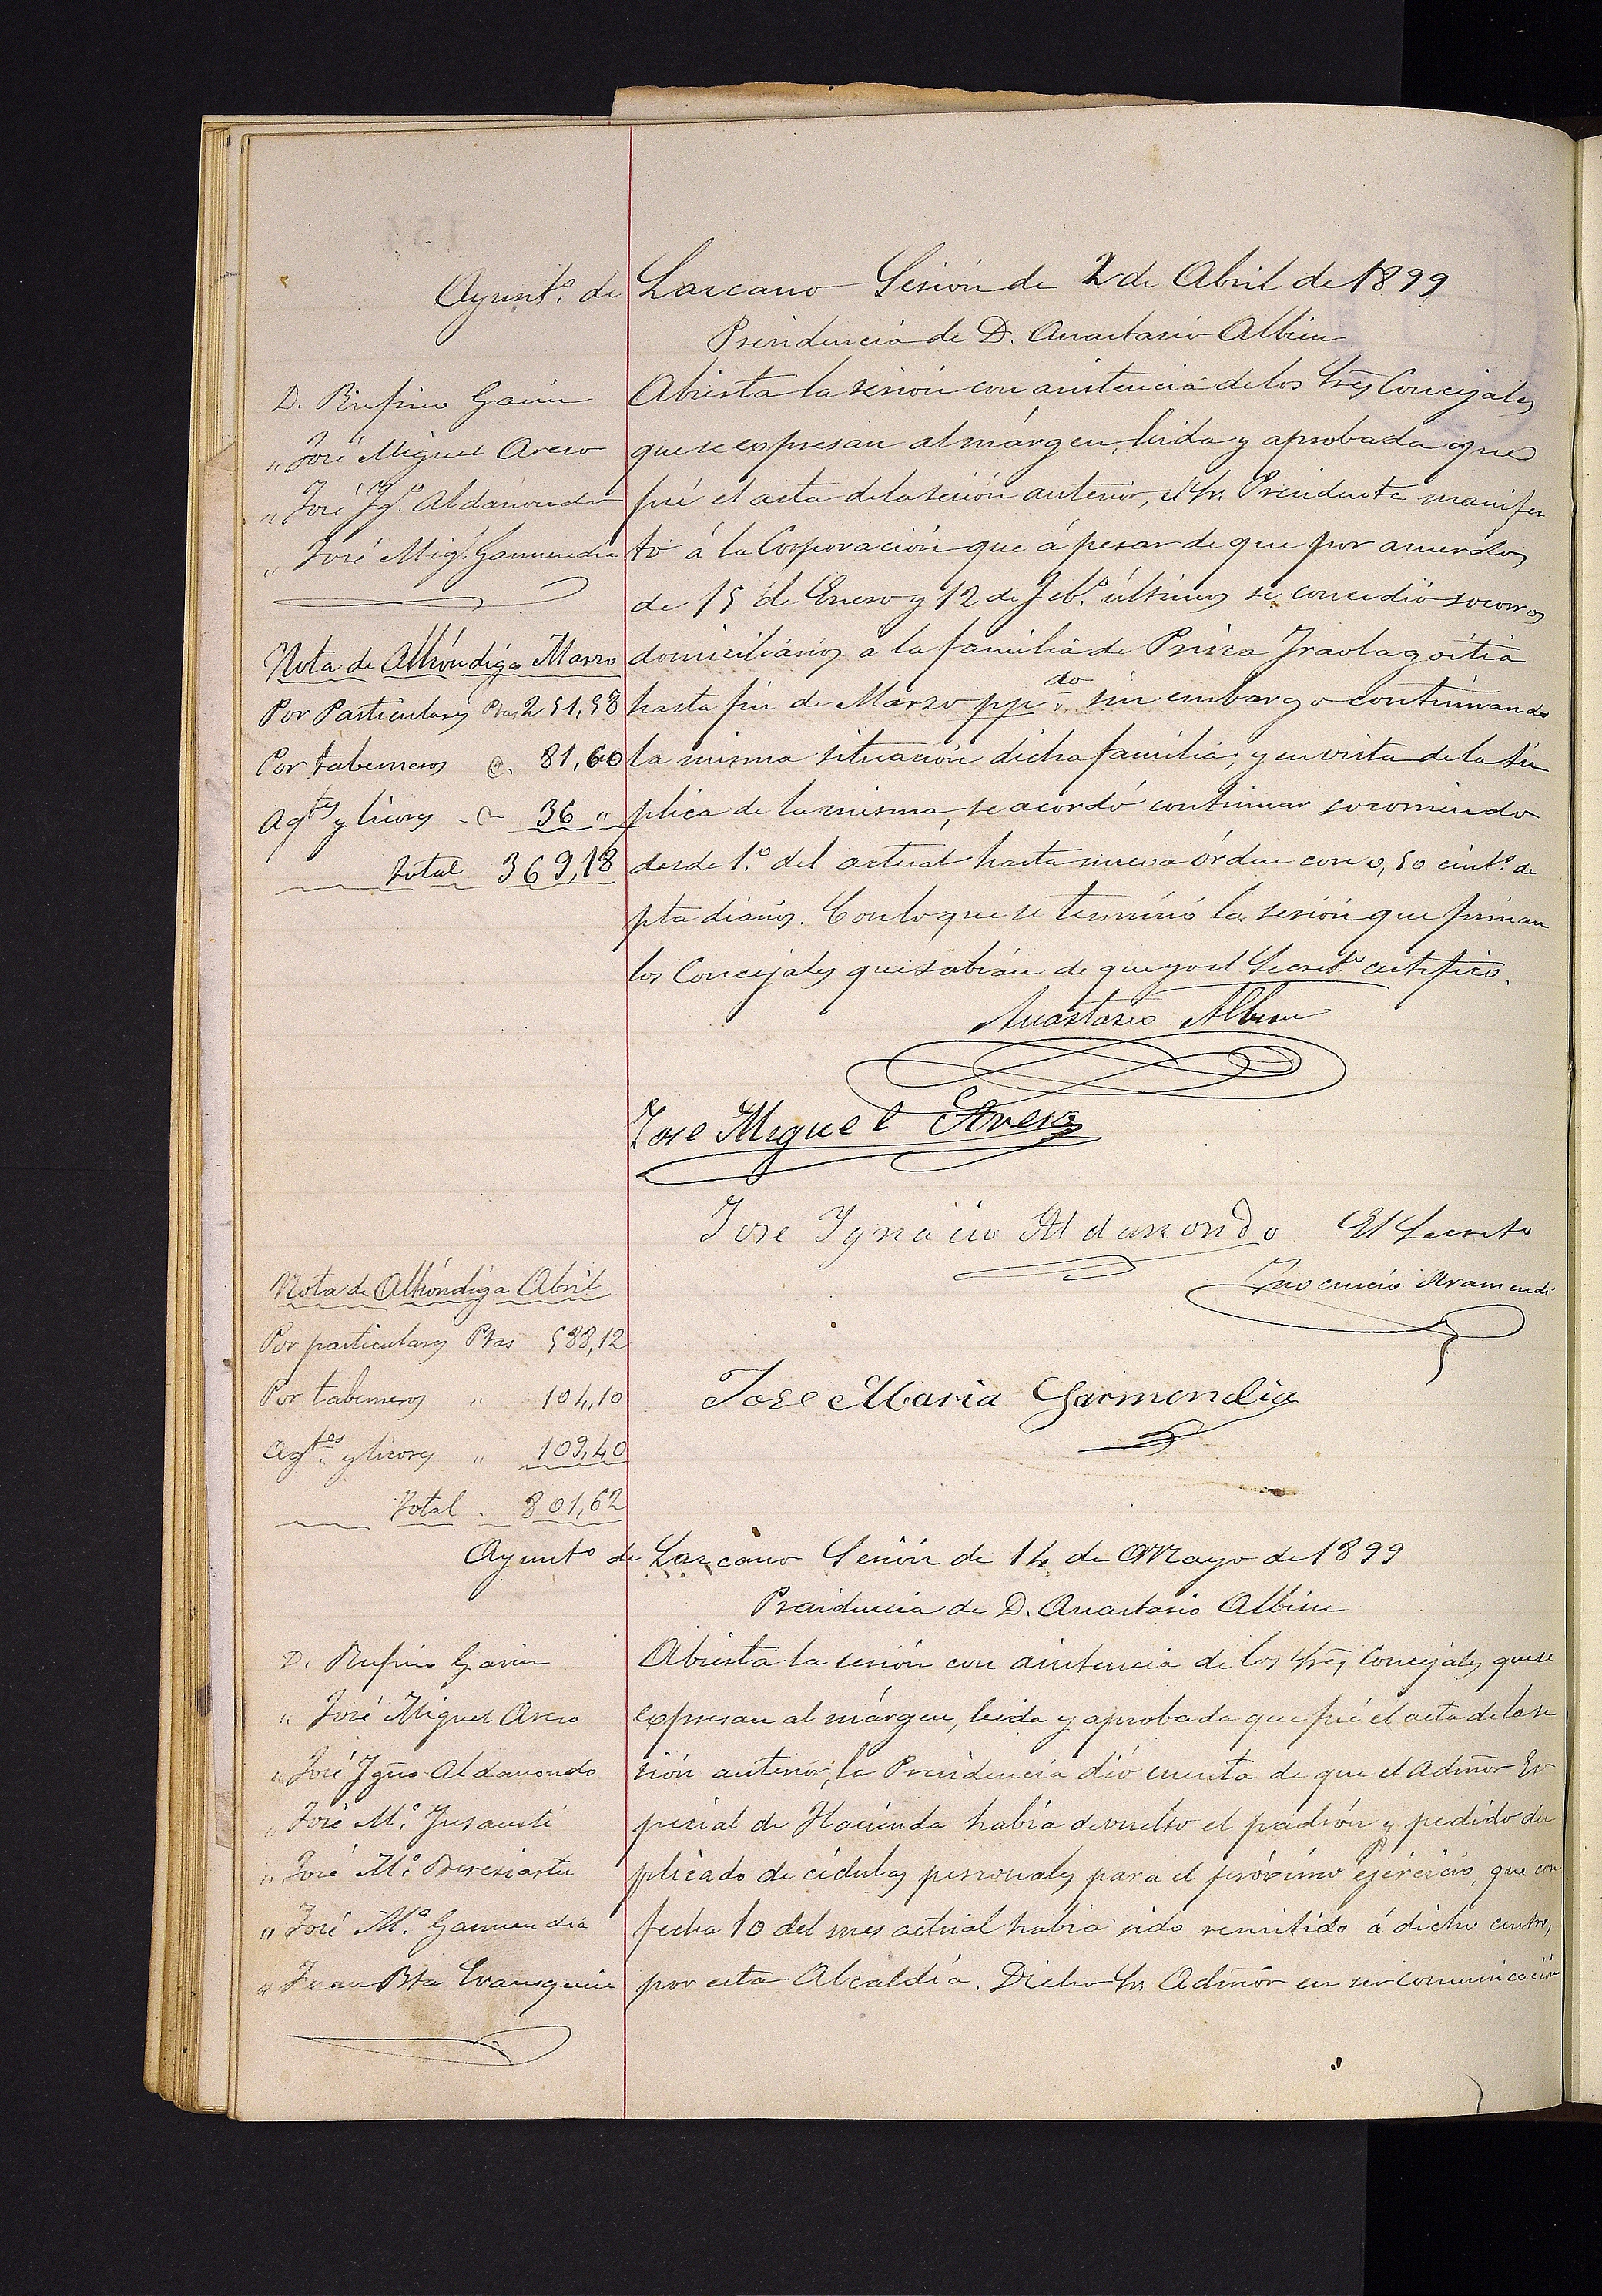 Ayunt.º de Lazcano Sesión de 2 de Abril de 1899
Presidencia de D. Anastasio Albisu
D. Rufino Garin
" José Miguel Areso
" José Ig.º Aldanondo
" José Mig.l Garmendia
Nota de Alhóndiga Marzo
Por Particulares Ptas 251,58
Por taberneros @. 81,60
Ag.tes y licores @ 36 "
Total 369,18
Abierta la sesión con asistencia de los Sres Concejales
que se expresan al márgen, leida y aprobada que
fué el acta de la sesión anterior, el Sr. Presidente manifes
tó á la Corporación que á pesar de que por acuerdos
de 15 de Enero y 12 de Feb.º últimos se concedió socorros
domiciliarios a la familia de Prisca Iraolagoitia
hasta fin de Marzo pp.do sin embargo continuando
la misma situación dicha familia; y en vista de la sú
plica de la misma, se acordó continuar socorriendo
desde 1.º del actual hasta nueva órden con 0,50 cént.s de
pta diarios. Con lo que se terminó la sesión que firman
los Concejales que sabían de que yo el Secret.º certifico.
Anastasio Albisu
Jose Miguel Areso
Jose Ygnacio Aldanondo El Secreto
Inocencio Aramendi
Jose Maria Garmendia
Nota de Alhóndiga Abril
Por particulares Ptas 588,12
Por taberneros " 104,10
Ag.tes y licores " 109,40
Total 801,62
Ayunt.º de Lazcano Sesión de 14 de Mayo de 1899
Presidencia de D. Anastasio Albisu
D. Rufino Garin
" José Miguel Areso
" José Ygño Aldanondo
" José M.ª Insausti
" José M.ª Beresiartu
" José M.ª Garmendia
" Juan Bta
Abierta la sesión con asistencia de los Sres Concejales que se
expresan al márgen, leida y aprobada que fué el acta de la se
sión anterior, la Presidencia dió cuenta de que el Admõr Es
pecial de Hacienda había devuelto el padrón y pedido du
plicado de cédulas personales para el próximo ejercicio, que con
fecha 10 del mes actual habia sido remitido á dicho centro,
por esta Alcaldía. Dicho Sr. Admõr en su comunicación